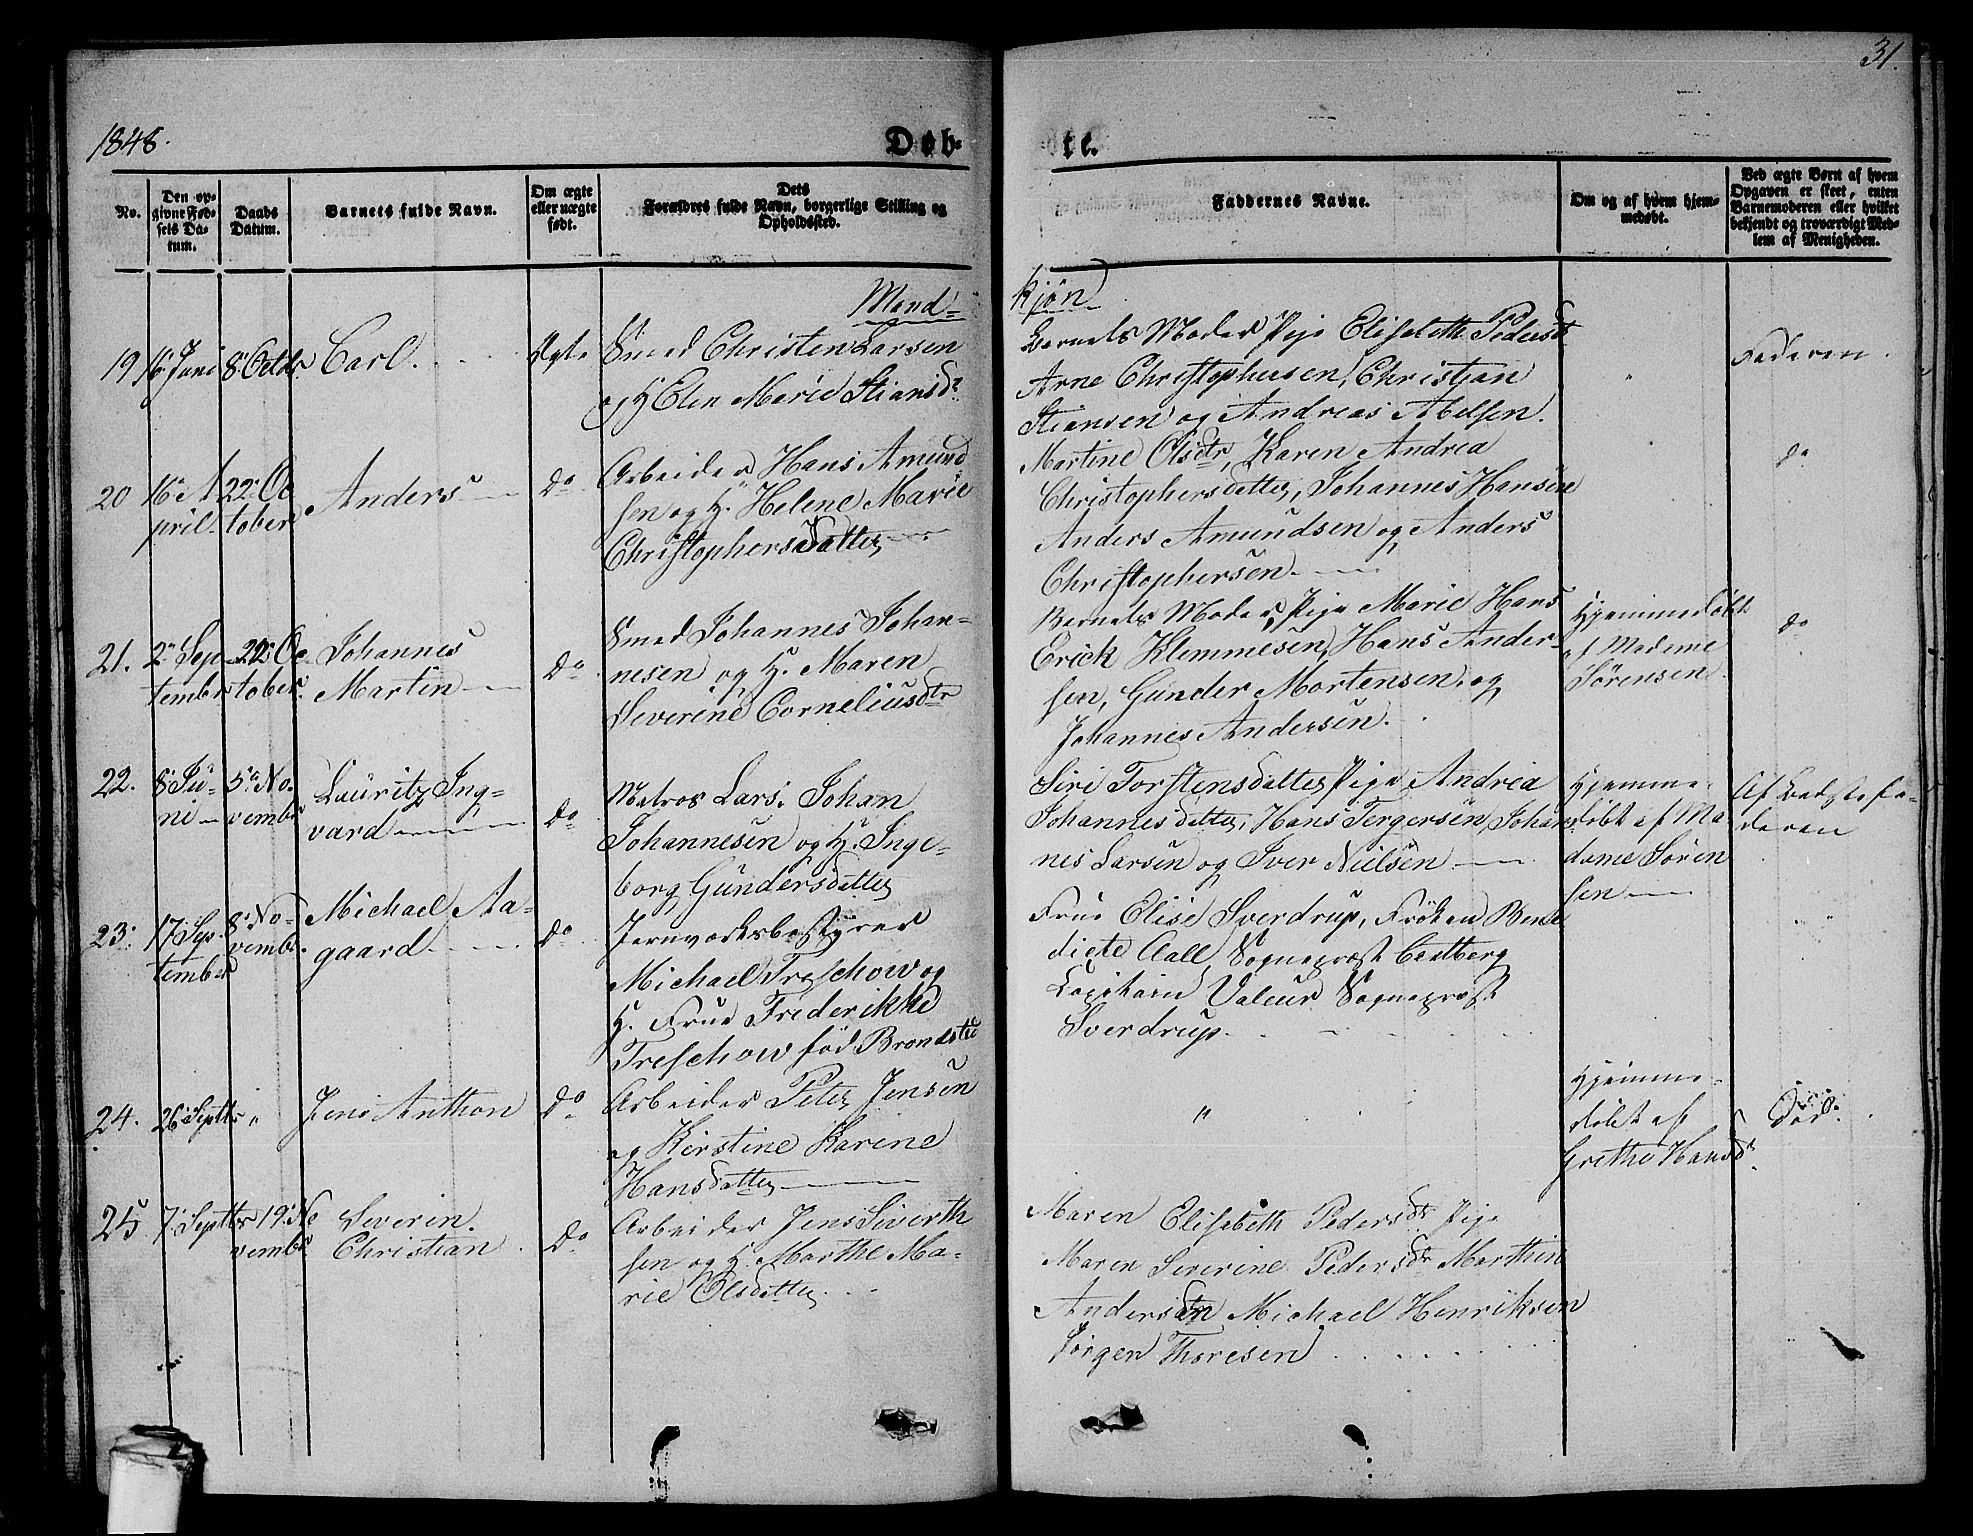 31.
1848.
Døb-
te.
No.
Den op-
givne Fød-
sels Da-
tum.
Daabs
Datum.
Barnets fulde Navn.
Om ægte
eller uægte
født.
Dets
Forældres fulde Navn, borgerlige Stilling og
Opholdssted.
Faddernes Navne.
Om og af hvem hjem-
medøbt.
Ved ægte Børn af hvem
Opgaven er skeet, enten
Barnemoderen eller hvilket
bekjendt og troværdigt Med-
lem af Menigheden.
Mand-
kjøn
19
16 Juni
8 Octbr
Carl.
Ægte
Smed Christen Larsen
og H Elen Marie Stiansdr
Barnets Moder, Pige Elisabeth Pedersdr
Arne Christophersen, Christian
Stiansen og Andreas Abelsen.
"
Faderen.
20
16 A
pril
22 Oc
tober
Anders
Do
Arbeider Hans Amund
sen og H. Helene Marie
Christophersdatter
Martine Olsdtr, Karen Andrea
Christophersdatter, Johannes Hansen
Anders Amundsen og Anders
Christophersen.
Do
21.
2 Sep
tember
22 Oc
tober.
Johannes
Martin
Do
Smed Johannes Johan-
nesen og H. Maren
Severine Corneliusdtr
Barnets Moder, Pige Marie Hans
Erick Klemmesen, Hans Ander-
sen, Gunder Mortensen og
Johannes Andersen.
Hjemmedøbt
af Madame
Sørensen
Do
22.
8 Ju-
ni
5 No-
vember
Lauritz Ing-
vard
Do
Matros Lars Johan
Johannesen og H. Inge-
borg Gundersdatter
Siri Torstensdatter, Pige Andrea
Johannesdatter, Hans Tergersen, Johan
nes Larsen og Iver Nielsen
Hjemme-
døbt af Ma
dame Søren
sen
Af Bedstefa-
deren
23.
17 Sep
tember
8 No-
vembr.
Michael Aa-
gaard
Do
Jernværksbestyrer
Michael Treschow og
H. Frue Frederikke
Treschow fød
Frue Elise Sverdrup, Frøken Bene
dicte Aall, Sognepræst
Capitain Valeur Sognepræst
Sverdrup.
24.
26 Septbr
"
Jens Anthon
Do
Arbeider Peter Jensen
og Kirstine Karine
Hansdatter
"
Hjemme-
døbt af
Grethe Hansdr.
Død.
25
7 Septbr
19 No
vembr
Severin
Christian
Do
Arbeider Jens Siverth
sen og H. Marthe Ma-
rie Olsdatter
Maren Elisabeth Pedersdtr Pige
Maren Severine Pedersdtr Marthin
Andersen Michael Henriksen
Jørgen Thoresen